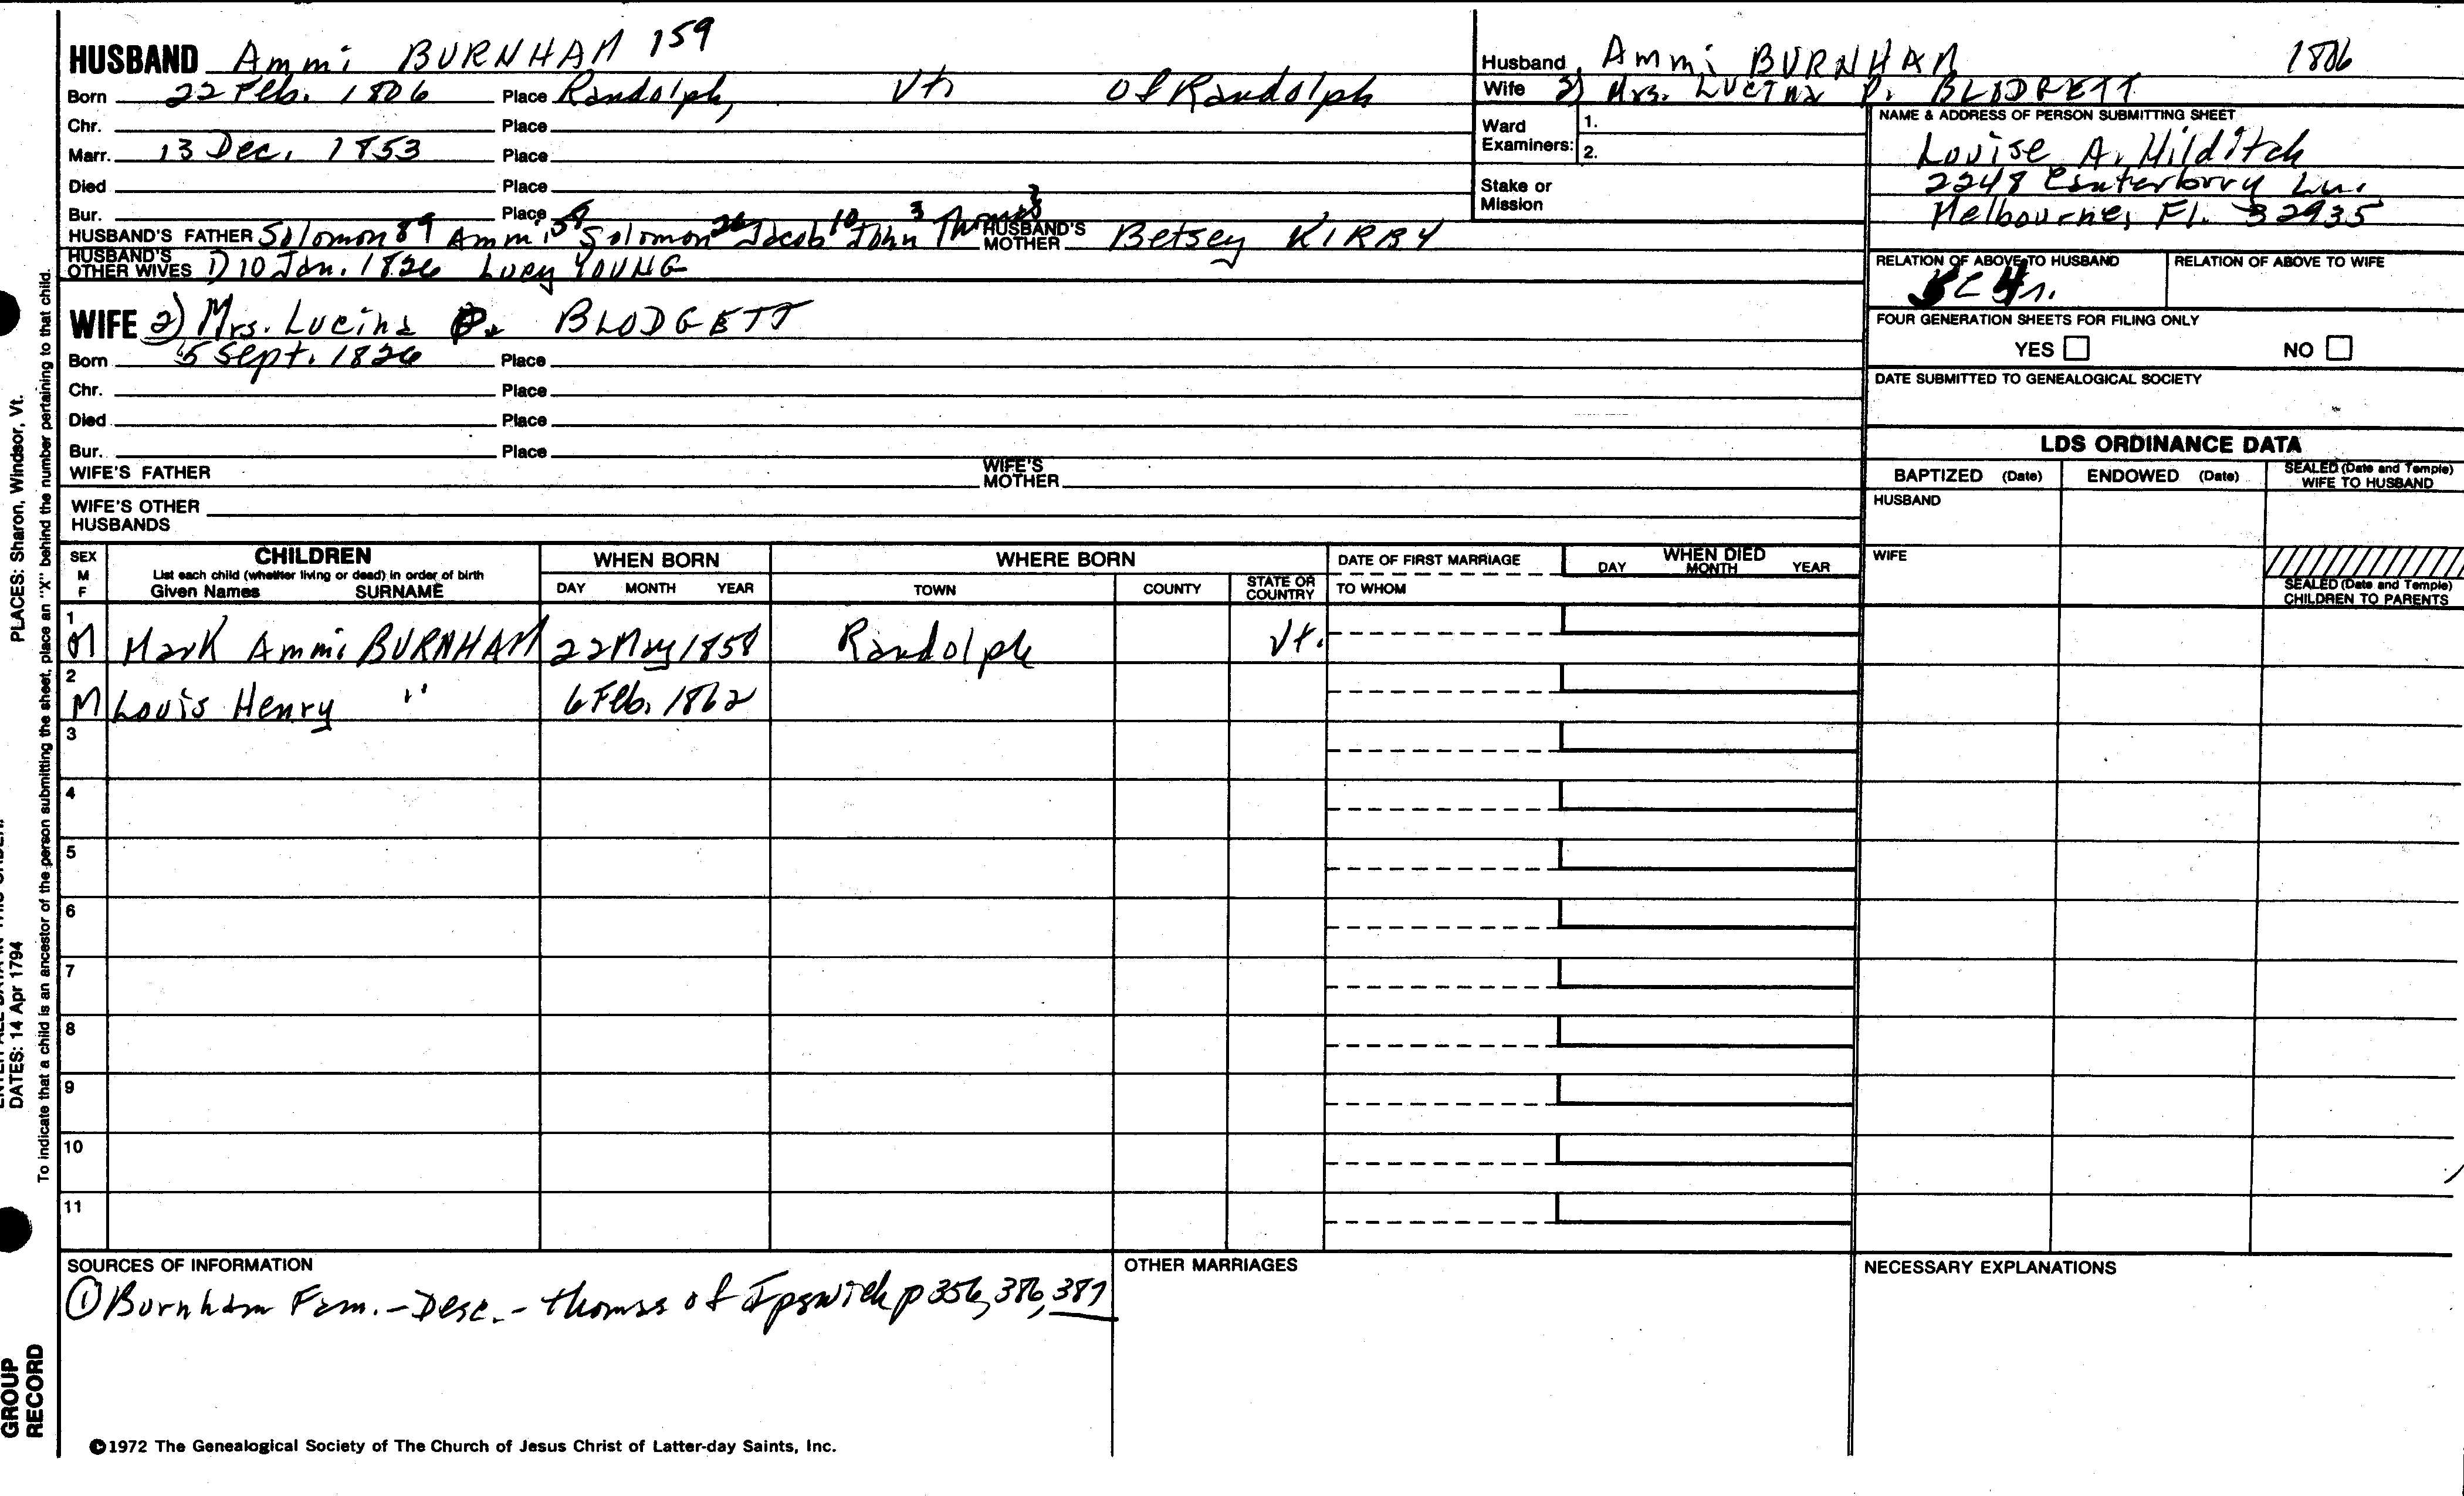 HUSBAND Ammi BURNHAM 159
Born 22 Feb. 1806 Place Randolph, Vt. of Randolph
Chr. Place
Marr. 13 Dec. 1853 Place
Died Place
Bur. Place
HUSBAND'S FATHER Solomon 89 Ammi 58 Solomon 26 Jacob 10 John 3 Thomas HUSBAND'S MOTHER Betsey KIRBY
HUSBAND'S OTHER WIVES 1) 10 Jan. 1826 Lucy YOUNG
WIFE 2) Mrs. Lucina P. BLODGETT
Born 5 Sept. 1826 Place
Chr. Place
Died Place
Bur. Place
WIFE'S FATHER WIFE'S MOTHER
WIFE'S OTHER HUSBANDS
Husband Ammi BURNHAM 1806
Wife 2) Mrs. LUCINA P. BLODGETT
Ward Examiners: 1.
2.
Stake or Mission
NAME & ADDRESS OF PERSON SUBMITTING SHEET
Louise A. Hilditch
2248 Canterbury Ln.
Melbourne, Fl. 32935
RELATION OF ABOVE TO HUSBAND RELATION OF ABOVE TO WIFE
FOUR GENERATION SHEETS FOR FILING ONLY
YES NO
DATE SUBMITTED TO GENEALOGICAL SOCIETY
LDS ORDINANCE DATA
BAPTIZED (Date) ENDOWED (Date) SEALED (Date and Temple) WIFE TO HUSBAND
HUSBAND
WIFE
SEALED (Date and Temple) CHILDREN TO PARENTS
SEX M F
CHILDREN
List each child (whether living or dead) in order of birth
Given Names SURNAME
WHEN BORN
DAY MONTH YEAR
WHERE BORN
TOWN COUNTY STATE OR COUNTRY
DATE OF FIRST MARRIAGE
TO WHOM
WHEN DIED
DAY MONTH YEAR
1 M Mark Ammi BURNHAM 22 May 1858 Randolph Vt.
2 M Louis Henry " 6 Feb. 1862
3
4
5
6
7
8
9
10
11
SOURCES OF INFORMATION
① Burnham Fam. - Desc. - Thomas of Ipswich p 356, 386, 387
OTHER MARRIAGES
NECESSARY EXPLANATIONS
©1972 The Genealogical Society of The Church of Jesus Christ of Latter-day Saints, Inc.
PLACES: Sharon, Windsor, Vt.
DATES: 14 Apr 1794
To indicate that a child is an ancestor of the person submitting the sheet, place an "X" behind the number pertaining to that child.
GROUP
RECORD